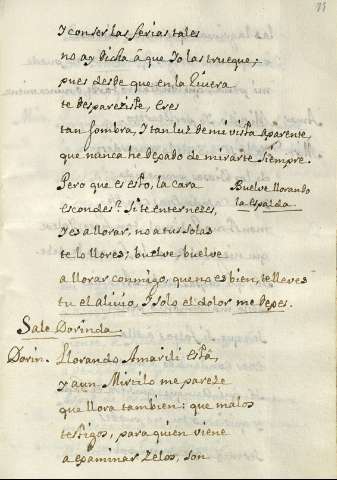 Y con ser las ferias tales
no ay dicha â que Yo las trueque;
pues desde que en la Rivera
te desapareziste, eres
tan sombra, Y tan luz de mi vista aparente,
que nunca he depado de mirarte siempre.
Pero que es esto, la cara
Buelve llorando
la espalda.
escondes? Si te enternezes,
y es a llorar, no a tus solas
te lo llores; buelve, buelve
a llorar conmigo, que no es bien, te lleves
tu el alivio, Y solo el dolor me depes.
Sale Dorinda
Dorin. Llorando Amarili está,
y aun Mirtilo me pareze
que llora tambien: que malos
testigos, para quien viene
a epaminar zelos, son